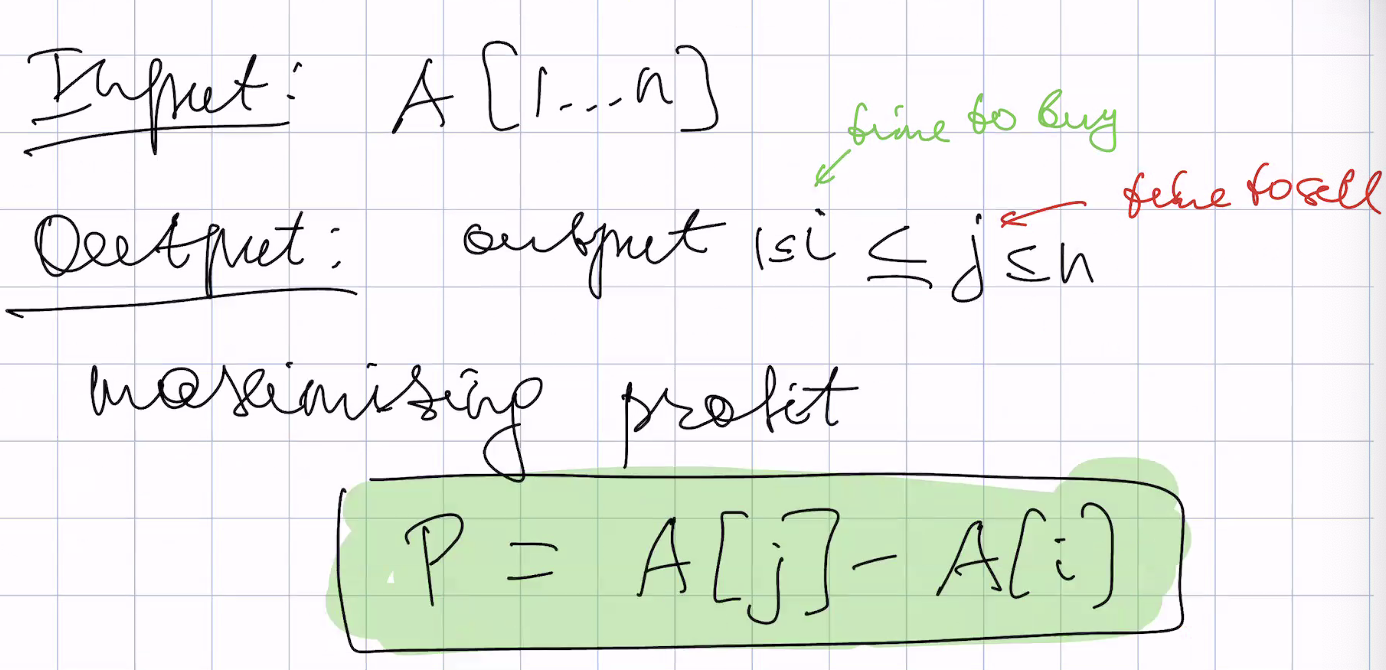 Input: A[1...n]
time to buy
time to sell
Output: output 1≤i ≤ j≤n
maximising profit
P = A[j] - A[i]